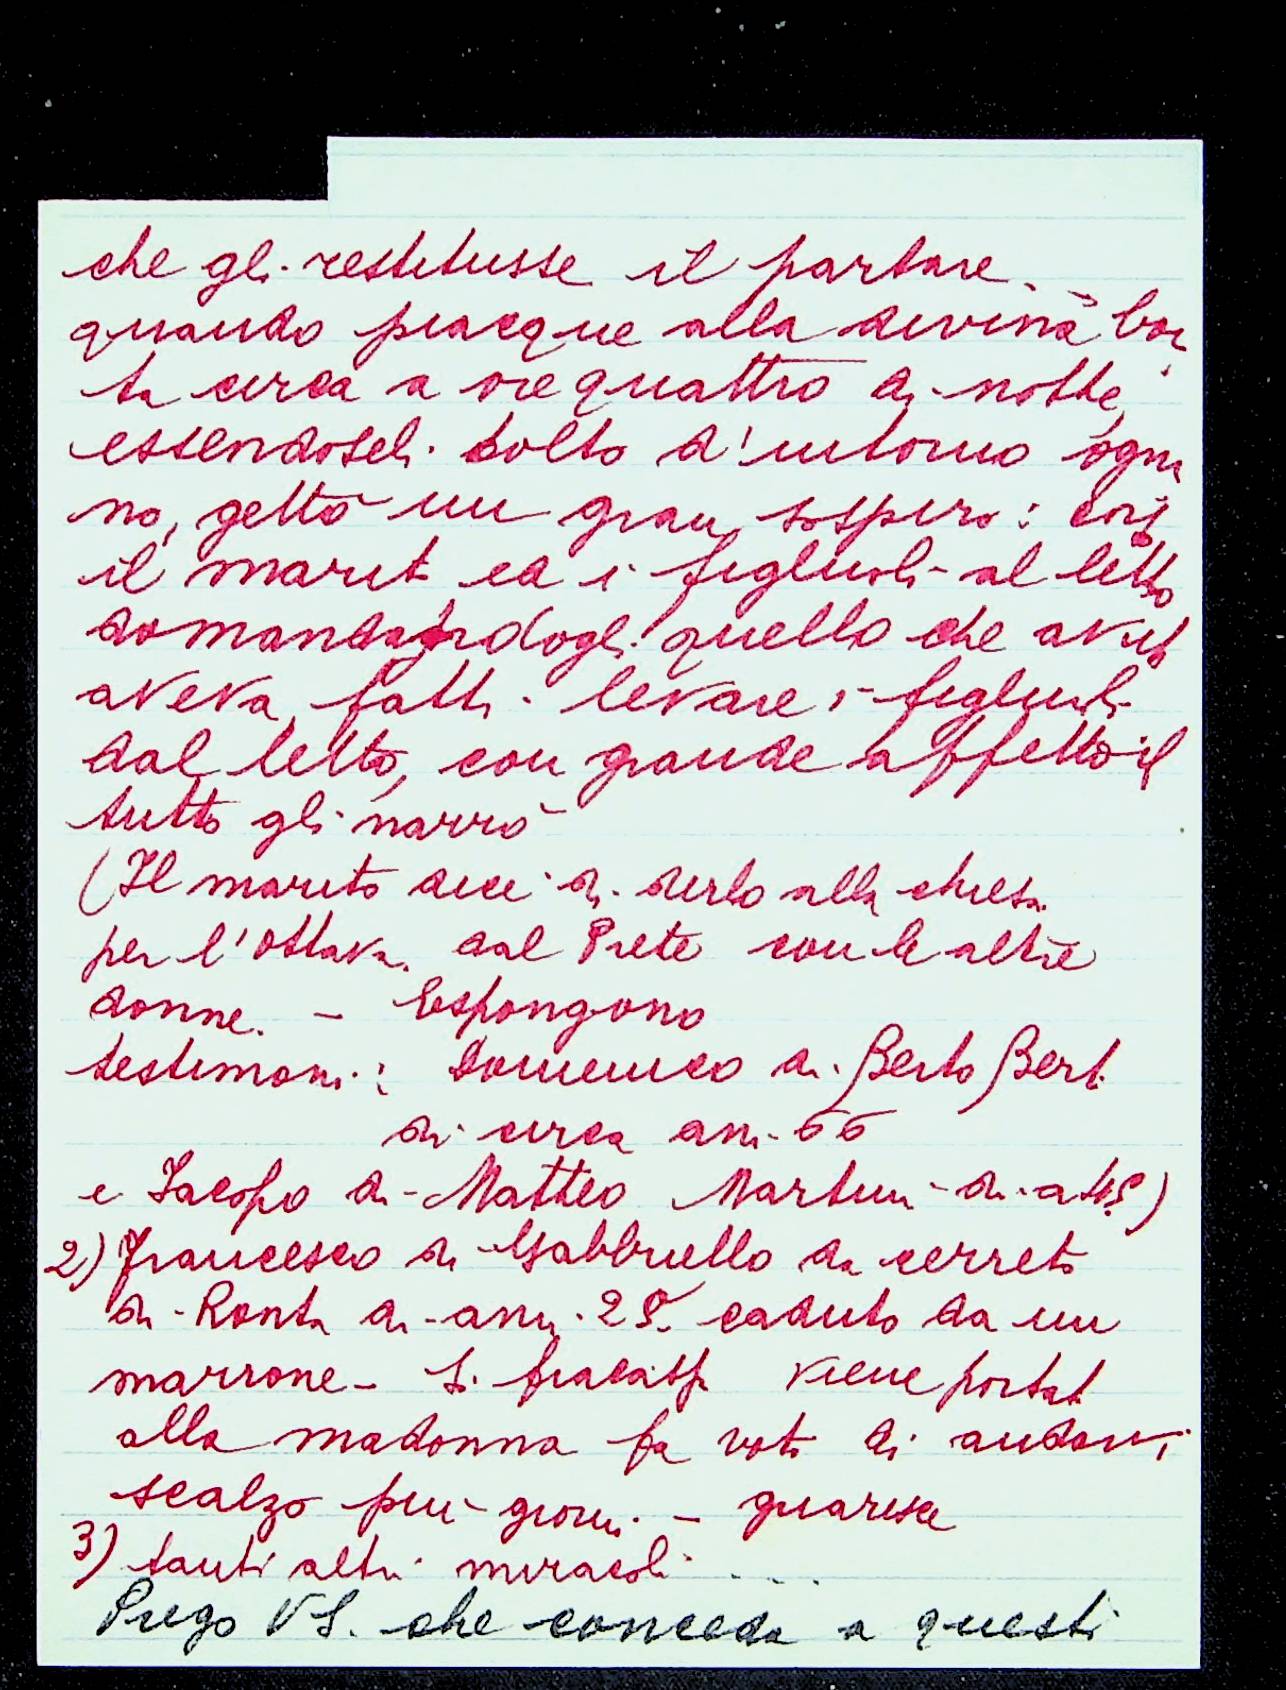 che gli restituisse il parlare.
quando piacque alla divina bon
tà circa a ore quattro di notte,
essendoseli tolto d'intorno ogni
no, gettò un gran sospiro: corse
il marito ed i figliuoli al letto
domandandogli quello che avuto
aveva, fatti levare i figliuoli
dal letto, con grande affetto il
tutto gli narrò
(Il marito dice di dirlo alla chiesa
per l'ottava dal Prete con le altre
donne. - Espongono
testimoni: Domenico di Berto Berti
di circa anni 66
e Jacopo di Matteo Martini di a 48)
2) Francesco di Gabbriello da cerreto
di Ronta di anni 28 caduto da un
marrone - si fracassa viene portato
alla madonna fa voto di andarvi
scalzo più giorni - guarisce
3) tanti altri miracoli ....
Prego VS. che conceda a questi